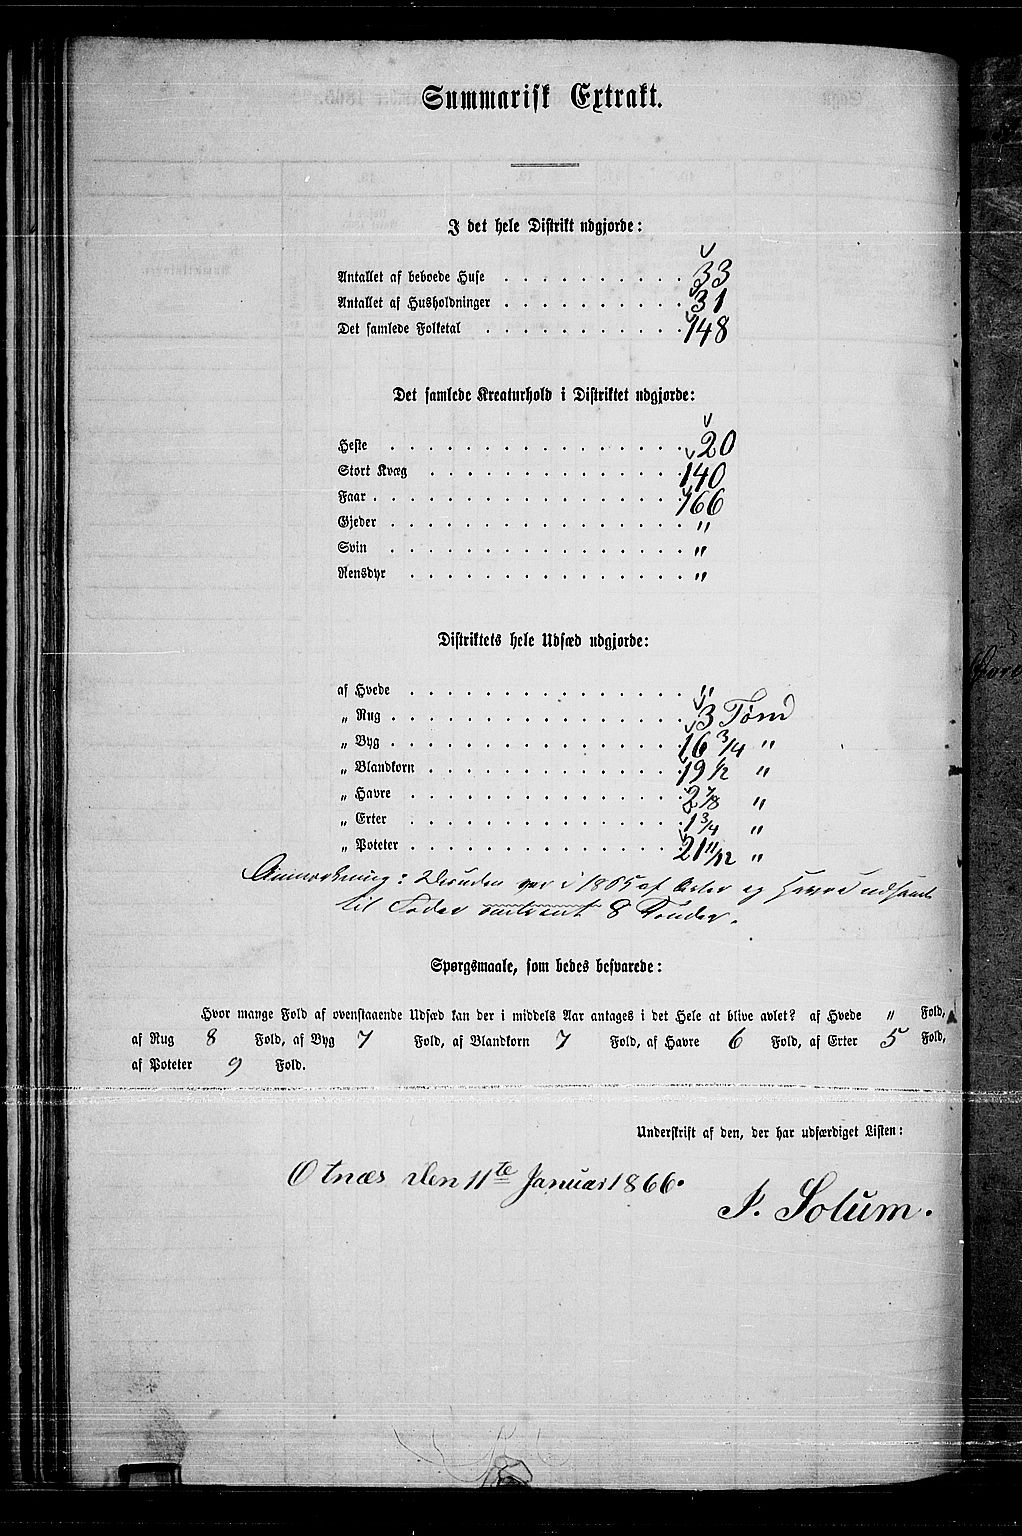 Summarisk Extrakt.
I det hele Distrikt udgjorde:
Antallet af beboede Huse . . . . . . . . . . 33
Antallet af Husholdninger . . . . . . . . . . 31
Det samlede Folketal . . . . . . . . . . . 148
Det samlede Kreaturhold i Distriktet udgjorde:
Heste . . . . . . . . . . . . . . . . 20
Stort Kvæg . . . . . . . . . . . . . . 140
Faar . . . . . . . . . . . . . . . . . 166
Gjeder . . . . . . . . . . . . . . . . "
Svin . . . . . . . . . . . . . . . . "
Rensdyr . . . . . . . . . . . . . . . "
Distriktets hele Udsæd udgjorde:
af Hvede . . . . . . . . . . . . . . . "
„ Rug . . . . . . . . . . . . . . . . 3 Tønd
„ Byg . . . . . . . . . . . . . . . . 16 3/4 "
„ Blandkorn . . . . . . . . . . . . . . 19 1/2 "
„ Havre . . . . . . . . . . . . . . . 2 7/8 "
„ Erter . . . . . . . . . . . . . . . 1 3/4 "
„ Poteter . . . . . . . . . . . . . . . 21 11/12 "
Anmærkning: Desuden var i 1865 af Erter og Havre udsaaet
til Foder omtrent 8 Tønder.
Spørgsmaale, som bedes besvarede:
Hvor mange Fold af ovenstaaende Udsæd kan der i middels Aar antages i det Hele at blive avlet? af Hvede " Fold,
af Rug 8 Fold, af Byg 7 Fold, af Blandkorn 7 Fold, af Havre 6 Fold, af Erter 5 Fold,
af Poteter 9 Fold.
Underskrift af den, der har udfærdiget Listen:
Otnæs den 11te Januar 1866.
J. Solum.